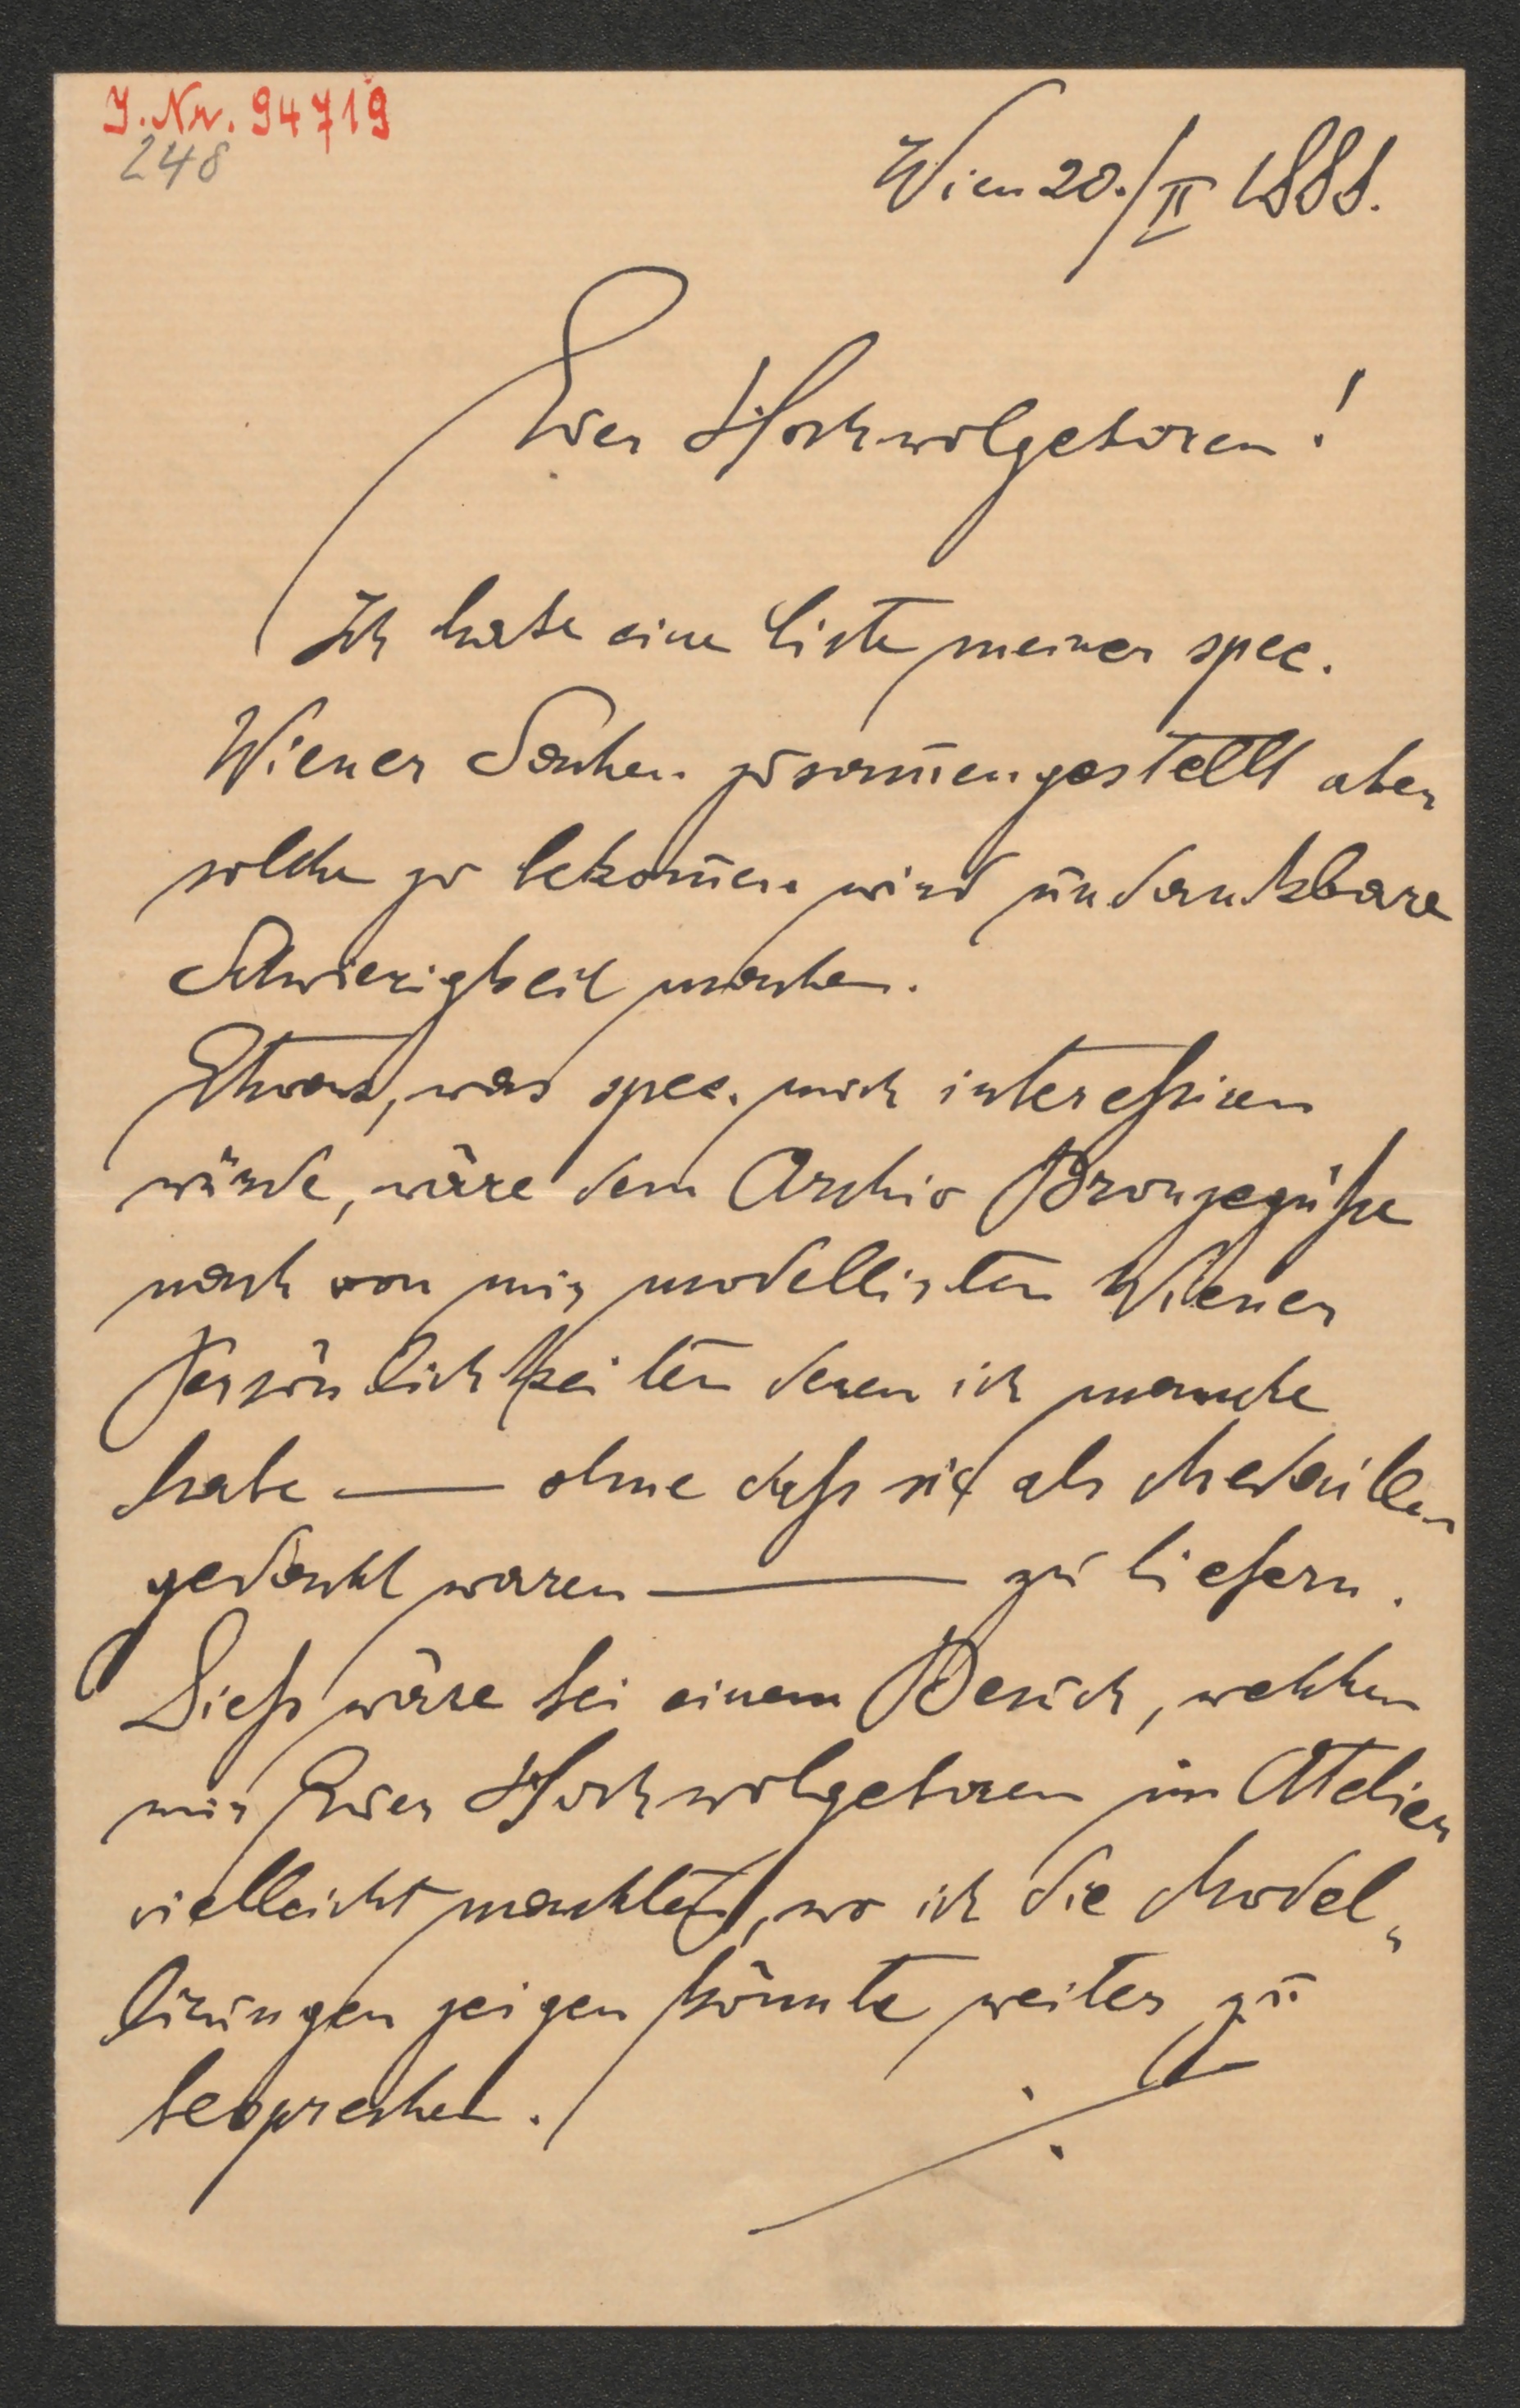 J. Nr. 94719
248
Wien 20./II 1888.
Euer Hochwolgeboren!
Ich habe eine Liste meiner spec.
Wiener Sachen zusam̅engestellt aber
solche zu bekom̅en wird undankbare
Schwierigkeit machen.
Etwas, was spec. mich interessiren
würde, wäre dem Archiv Bronzegüsse
nach von mir modellirten Wiener
Persönlichkeiten deren ich manche
habe — ohne dass sie als Medaillen
gedacht waren — zu liefern.
Diess wäre bei einem Besuch, welchen
mir Euer Hochwolgeboren im Atelier
vielleicht machten, wo ich die Model„
lirungen zeigen könnte weiter zu
besprechen.